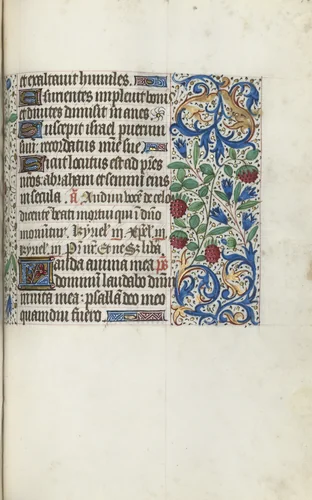 et exaltavit humiles.
Esurientes implevit bonis
et divites dimisit inanes.
Suscepit israel puerum
suum: recordatus mie sue
Sicut locutus est ad pres
nros abraham et semini eius
in secula. a. Audivi voce de celo
dicente beati mortui qui i dno
moriunt. Kyriel. in Xpel. in
Kyriel. in Pr nr. Et ne. S; liba.
Lauda anima mea ps
dominum laudabo dnm
in vita mea: psallam deo meo
quamdiu fuero.